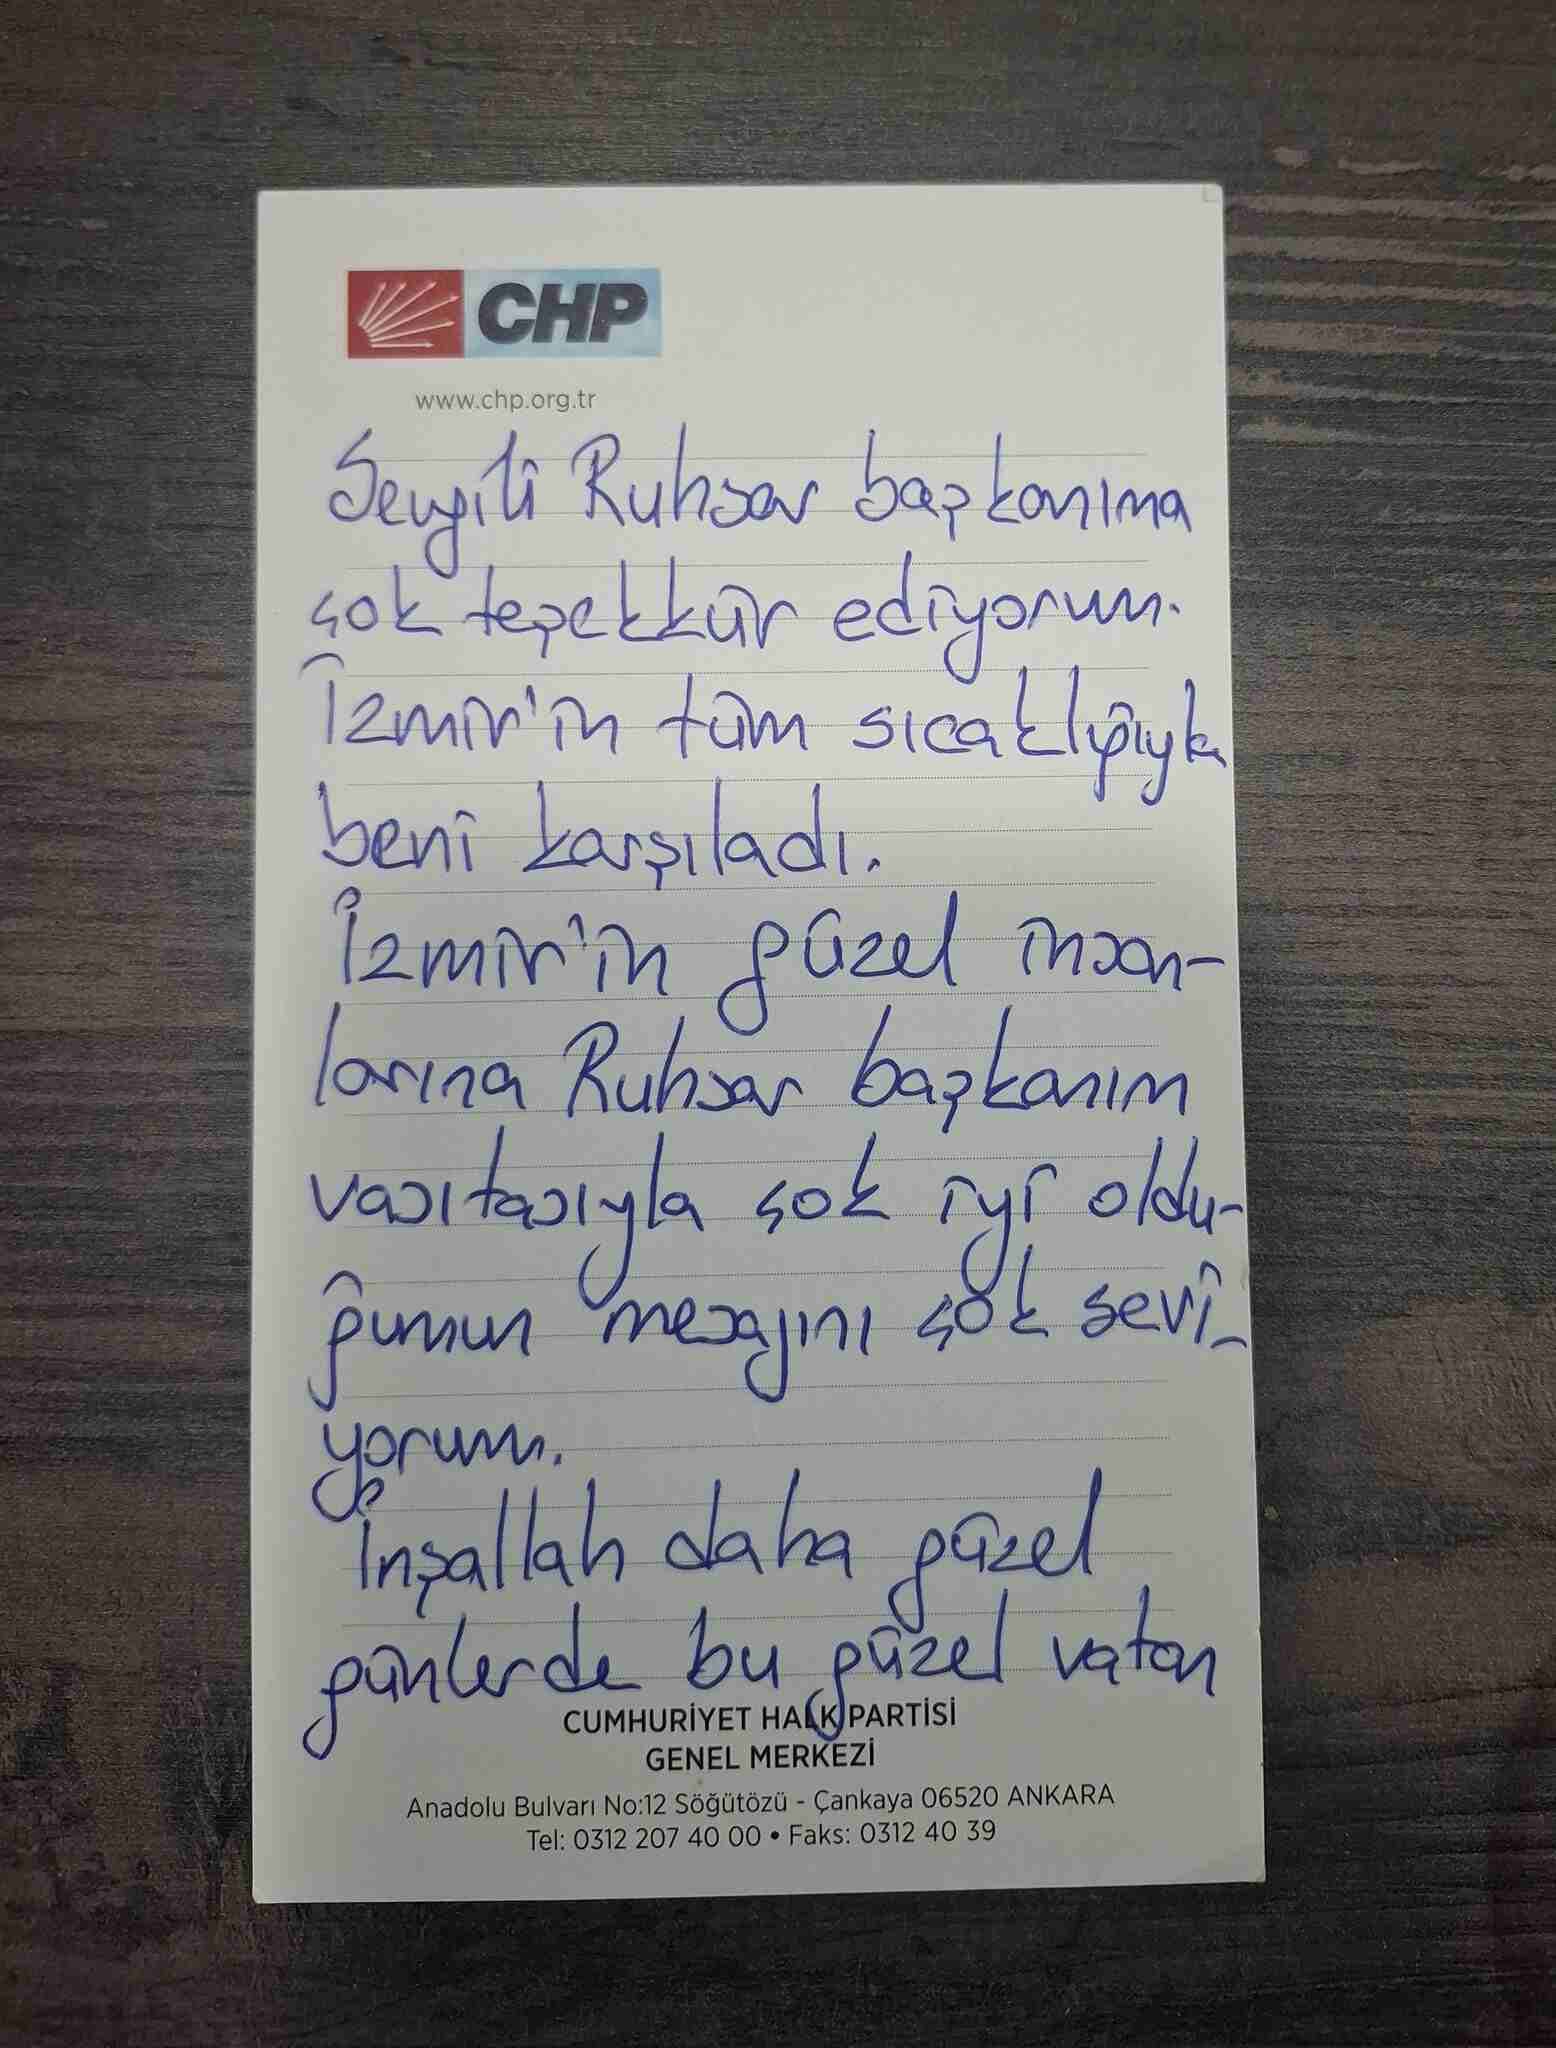 CHP
www.chp.org.tr
Sevgili Ruhsar başkanıma
çok teşekkür ediyorum.
İzmir'in tüm sıcaklığıyla
beni karşıladı.
İzmir'in güzel insan-
larına Ruhsar başkanım
vasıtasıyla çok iyi oldu-
ğumun mesajını çok sevi-
yorum.
İnşallah daha güzel
günlerde bu güzel vatan
CUMHURİYET HALK PARTİSİ
GENEL MERKEZİ
Anadolu Bulvarı No:12 Söğütözü - Çankaya 06520 ANKARA
Tel: 0312 207 40 00 • Faks: 0312 40 39